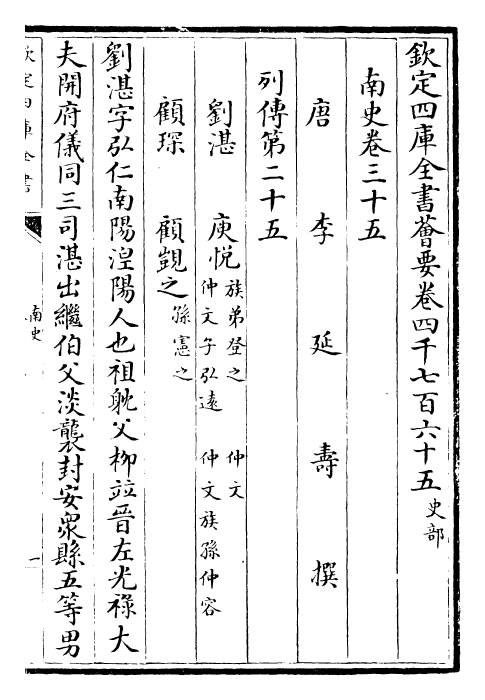 欽定四庫全書薈要卷四千七百六十五 史部
南史卷三十五
唐 李 延 壽 撰
列傳第二十五
劉湛 庾悅 族弟登之 仲文
仲文子弘遠 仲文族孫仲容
顧琛 顧覬之 孫憲之
劉湛字弘仁南陽涅陽人也祖耽父柳竝晉左光祿大
夫開府儀同三司湛出繼伯父淡襲封安眾縣五等男
欽定四庫全書
南史
一